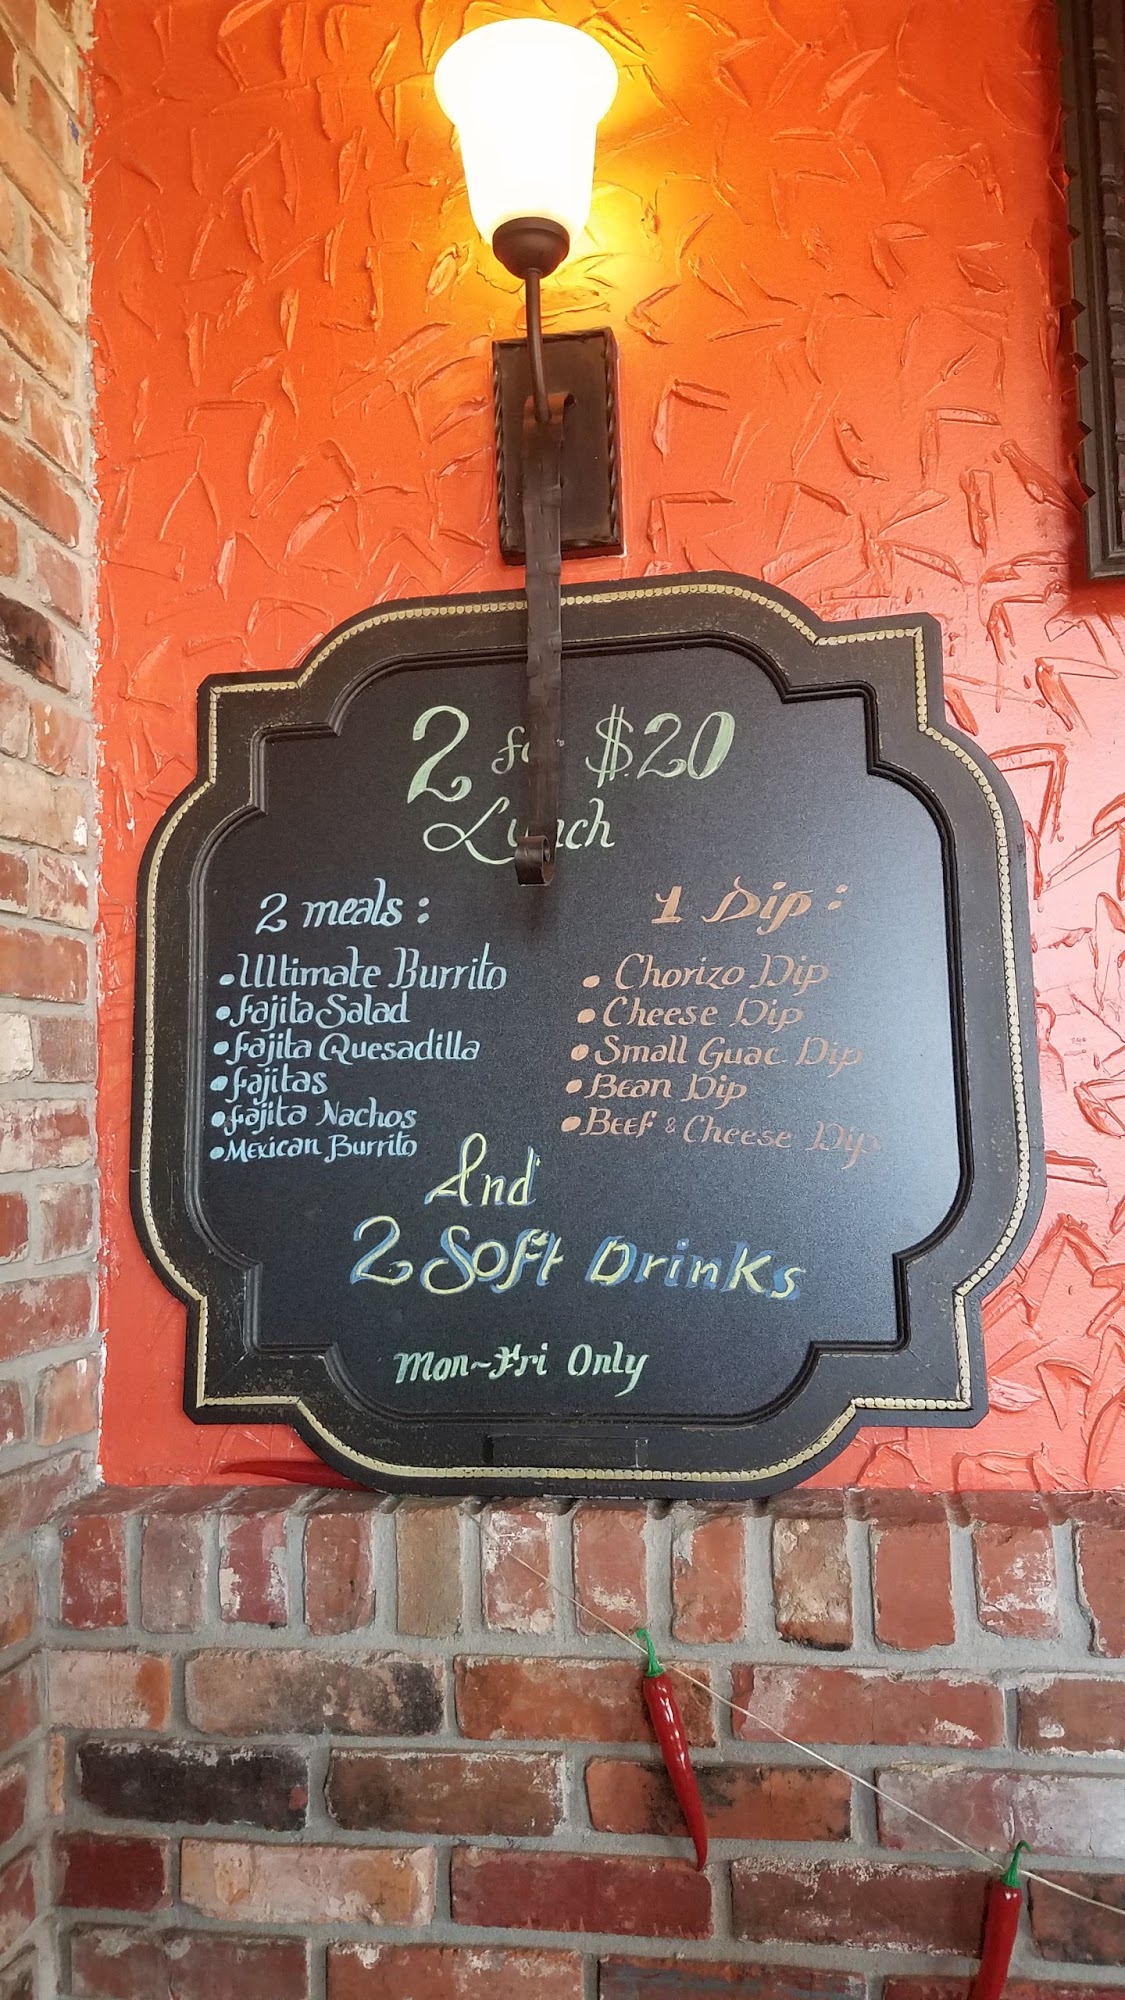 2 for $20
Lunch
2 meals:
•Ultimate Burrito
•Fajita Salad
•Fajita Quesadilla
•Fajitas
•Fajita Nachos
•Mexican Burrito
1 Dip:
• Chorizo Dip
• Cheese Dip
• Small Guac Dip
• Bean Dip
• Beef & Cheese Dip
And
2 Soft Drinks
Mon~Fri Only